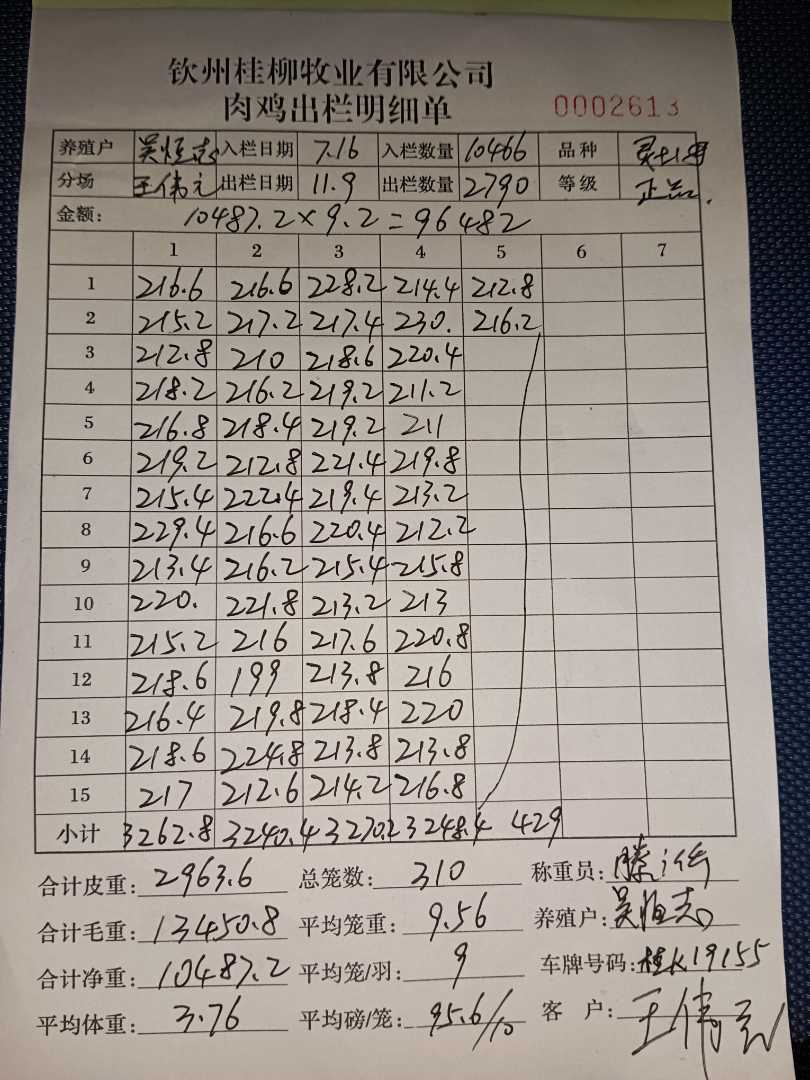 钦州桂柳牧业有限公司
肉鸡出栏明细单 0002613
养殖户 吴恒志 入栏日期 7.16 入栏数量 10466 品种
分场 王伟元 出栏日期 11.9 出栏数量 2790 等级 正品.
金额: 10487.2×9.2=96482
1 2 3 4 5 6 7
1 216.6 216.6 228.2 214.4 212.8
2 215.2 217.2 217.4 230. 216.2
3 212.8 210 218.6 220.4
4 218.2 216.2 219.2 211.2
5 216.8 218.4 219.2 211
6 219.2 212.8 221.4 219.8
7 215.4 222.4 219.4 213.2
8 229.4 216.6 220.4 212.2
9 213.4 216.2 215.4 215.8
10 220. 221.8 213.2 213
11 215.2 216 217.6 220.8
12 218.6 199 213.8 216
13 216.4 219.8 218.4 220
14 218.6 224.8 213.8 213.8
15 217 212.6 214.2 216.8
小计 3262.8 3240.4 3270.2 3248.4 429
合计皮重: 2963.6 总笼数: 310 称重员:
合计毛重: 13450.8 平均笼重: 9.56 养殖户: 吴恒志
合计净重: 10487.2 平均笼/羽: 9 车牌号码: 桂K19155
平均体重: 3.76 平均磅/笼: 95.6/10 客户: 王伟元